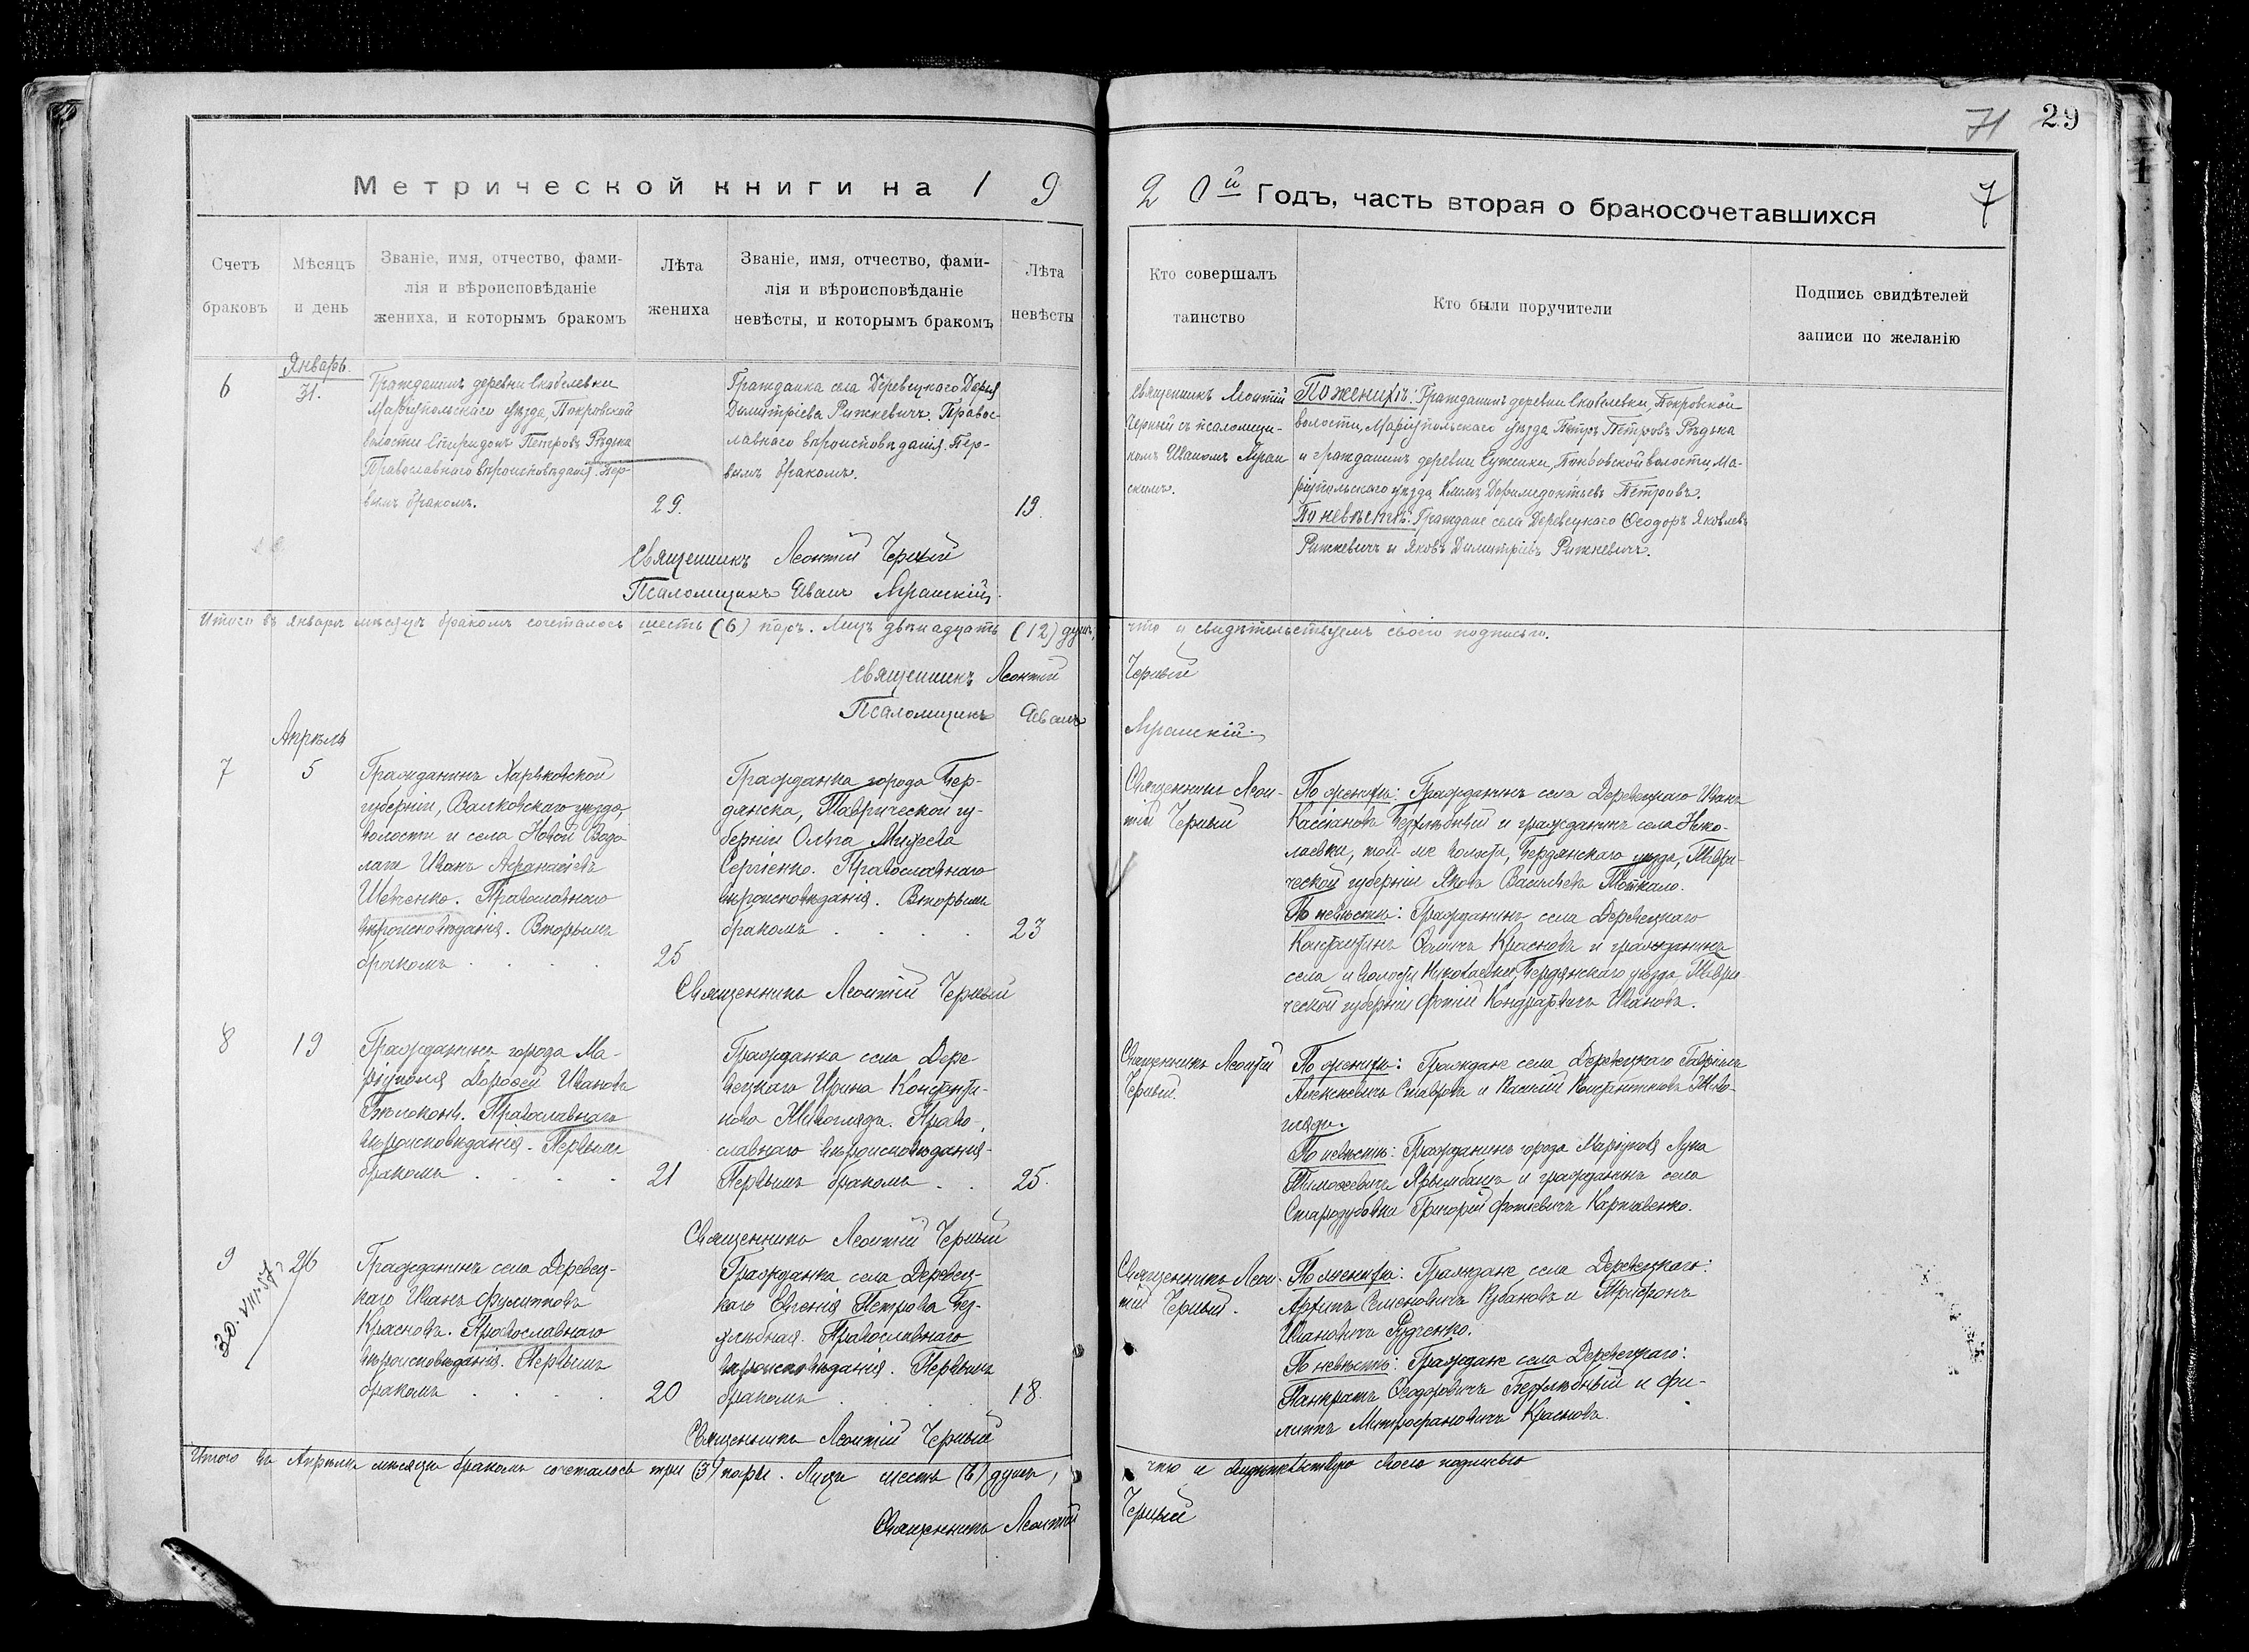 71 29
Метрической книги на 1 9
2 0й Годъ, часть вторая о бракосочетавшихся 7
Счетъ браковъ
Мѣсяцъ и день
Званіе, имя, отчество, фами-
лія и вѣроисповѣданіе
жениха, и которымъ бракомъ
Лѣта жениха
Званіе, имя, отчество, фами-
лія и вѣроисповѣданіе
невѣсты, и которымъ бракомъ
Лѣта невѣсты
Кто совершалъ
таинство
Кто были поручители
Подпись свидѣтелей
записи по желанію
Январь.
6
31.
Гражданинъ деревни Скобелевки
Маріупольскаго уѣзда, Покровской
волости Спиридонъ Петровъ Рѣдька
Православнаго вѣроисповѣданія. Пер-
вымъ бракомъ.
29.
Гражданка села Деревецкаго Дарья
Димитріева Рижкевичъ. Правос-
лавнаго вѣроисповѣданія. Пер-
вымъ бракомъ.
19.
Священникъ Леонтій
Черный съ псаломщи-
комъ Иваномъ
скимъ.
По женихѣ: Гражданинъ деревни Скобелевки, Покровской
волости, Маріупольскаго уѣзда Петръ Петровъ Рѣдька
и гражданинъ деревни Суженки, Покровской волости, Ма-
ріупольскаго уѣзда Климъ Петровъ.
По невѣстѣ: Граждане села Деревецкаго Ѳеодоръ Яковлевъ
Рижкевичъ и Яковъ Димитріевъ Рижкевичъ.
Священникъ Леонтій Черный
Псаломщикъ Иванъ
Итого въ январѣ мѣсяцѣ бракомъ сочеталось шесть (6) паръ. Лицъ двѣнадцать (12) душъ,
что и свидѣтельствуемъ своею подписью.
Священникъ Леонтій Черный
Псаломщикъ Иванъ
Апрѣль
7
5
Гражданинъ Харьковской
губерніи, Валковскаго уѣзда,
волости и села Новой Водо
лаги Иванъ Аѳанасіевъ
Шевченко. Православнаго
вѣроисповѣданія. Вторымъ
бракомъ . . . .
25
Гражданка города Бер-
дянска, Таврической гу-
берніи Ольга Михеева
Сергіенко. Православнаго
вѣроисповѣданія. Вторымъ
бракомъ . . . .
23
Священникъ Леон-
тій Черный
По женихѣ: Гражданинъ села Деревецкаго Иванъ
Кассіановъ Безхлѣбный и гражданинъ села Нико-
лаевки, той-же волости, Бердянскаго уѣзда, Таври-
ческой губерніи Яковъ Васильевъ Поткало.
По невѣстѣ: Гражданинъ села Деревецкаго
Константинъ Красновъ и гражданинъ
села и волости Николаевки, Бердянскаго уѣзда Таври
ческой губерніи Фотій Кондратовичъ Ивановъ.
Священникъ Леонтій Черный
8
19
Гражданинъ города Ма-
ріуполя Дороѳей Ивановъ
Бѣлоконь. Православнаго
вѣроисповѣданія. Первымъ
бракомъ . . . .
21
Гражданка села Дере-
вецкаго Ирина Константи-
нова Живоглядъ. Право-
славнаго вѣроисповѣданія.
Первымъ бракомъ . .
25.
Священникъ Леонтій
Черный.
По женихѣ: Граждане села Деревецкаго Гавріилъ
Алексѣевичъ Ставровъ и Василій Константиновъ Живо-
глядъ.
По невѣстѣ: Гражданинъ города Маріуполя Лука
Тимоѳеевичъ Ярымбашъ и гражданинъ села
Стародубовки Григорій Фотіевичъ Карпавенко.
Священникъ Леонтій Черный
9
26
30.VIII-57г
Гражданинъ села Деревец-
каго Иванъ Филипповъ
Красновъ. Православнаго
вѣроисповѣданія. Первымъ
бракомъ . . . .
20
Гражданка села Деревец-
каго Евгенія Петрова Без-
хлѣбная. Православнаго
вѣроисповѣданія. Первымъ
бракомъ . . . .
18.
Священникъ Леон-
тій Черный.
По женихѣ: Граждане села Деревецкаго:
Архипъ Семеновичъ Кубановъ и Трифонъ
Ивановичъ Рудченко.
По невѣстѣ: Граждане села Деревецкаго:
Панкратъ Ѳеодоровичъ Безхлѣбный и Фи-
липпъ Митрофановичъ Красновъ.
Священникъ Леонтій Черный
Итого въ Апрѣлѣ мѣсяцѣ бракомъ сочеталось три (3) пары. Лицъ шесть (6) душъ,
что и свидѣтельствую своею подписью
Священникъ Леонтій Черный